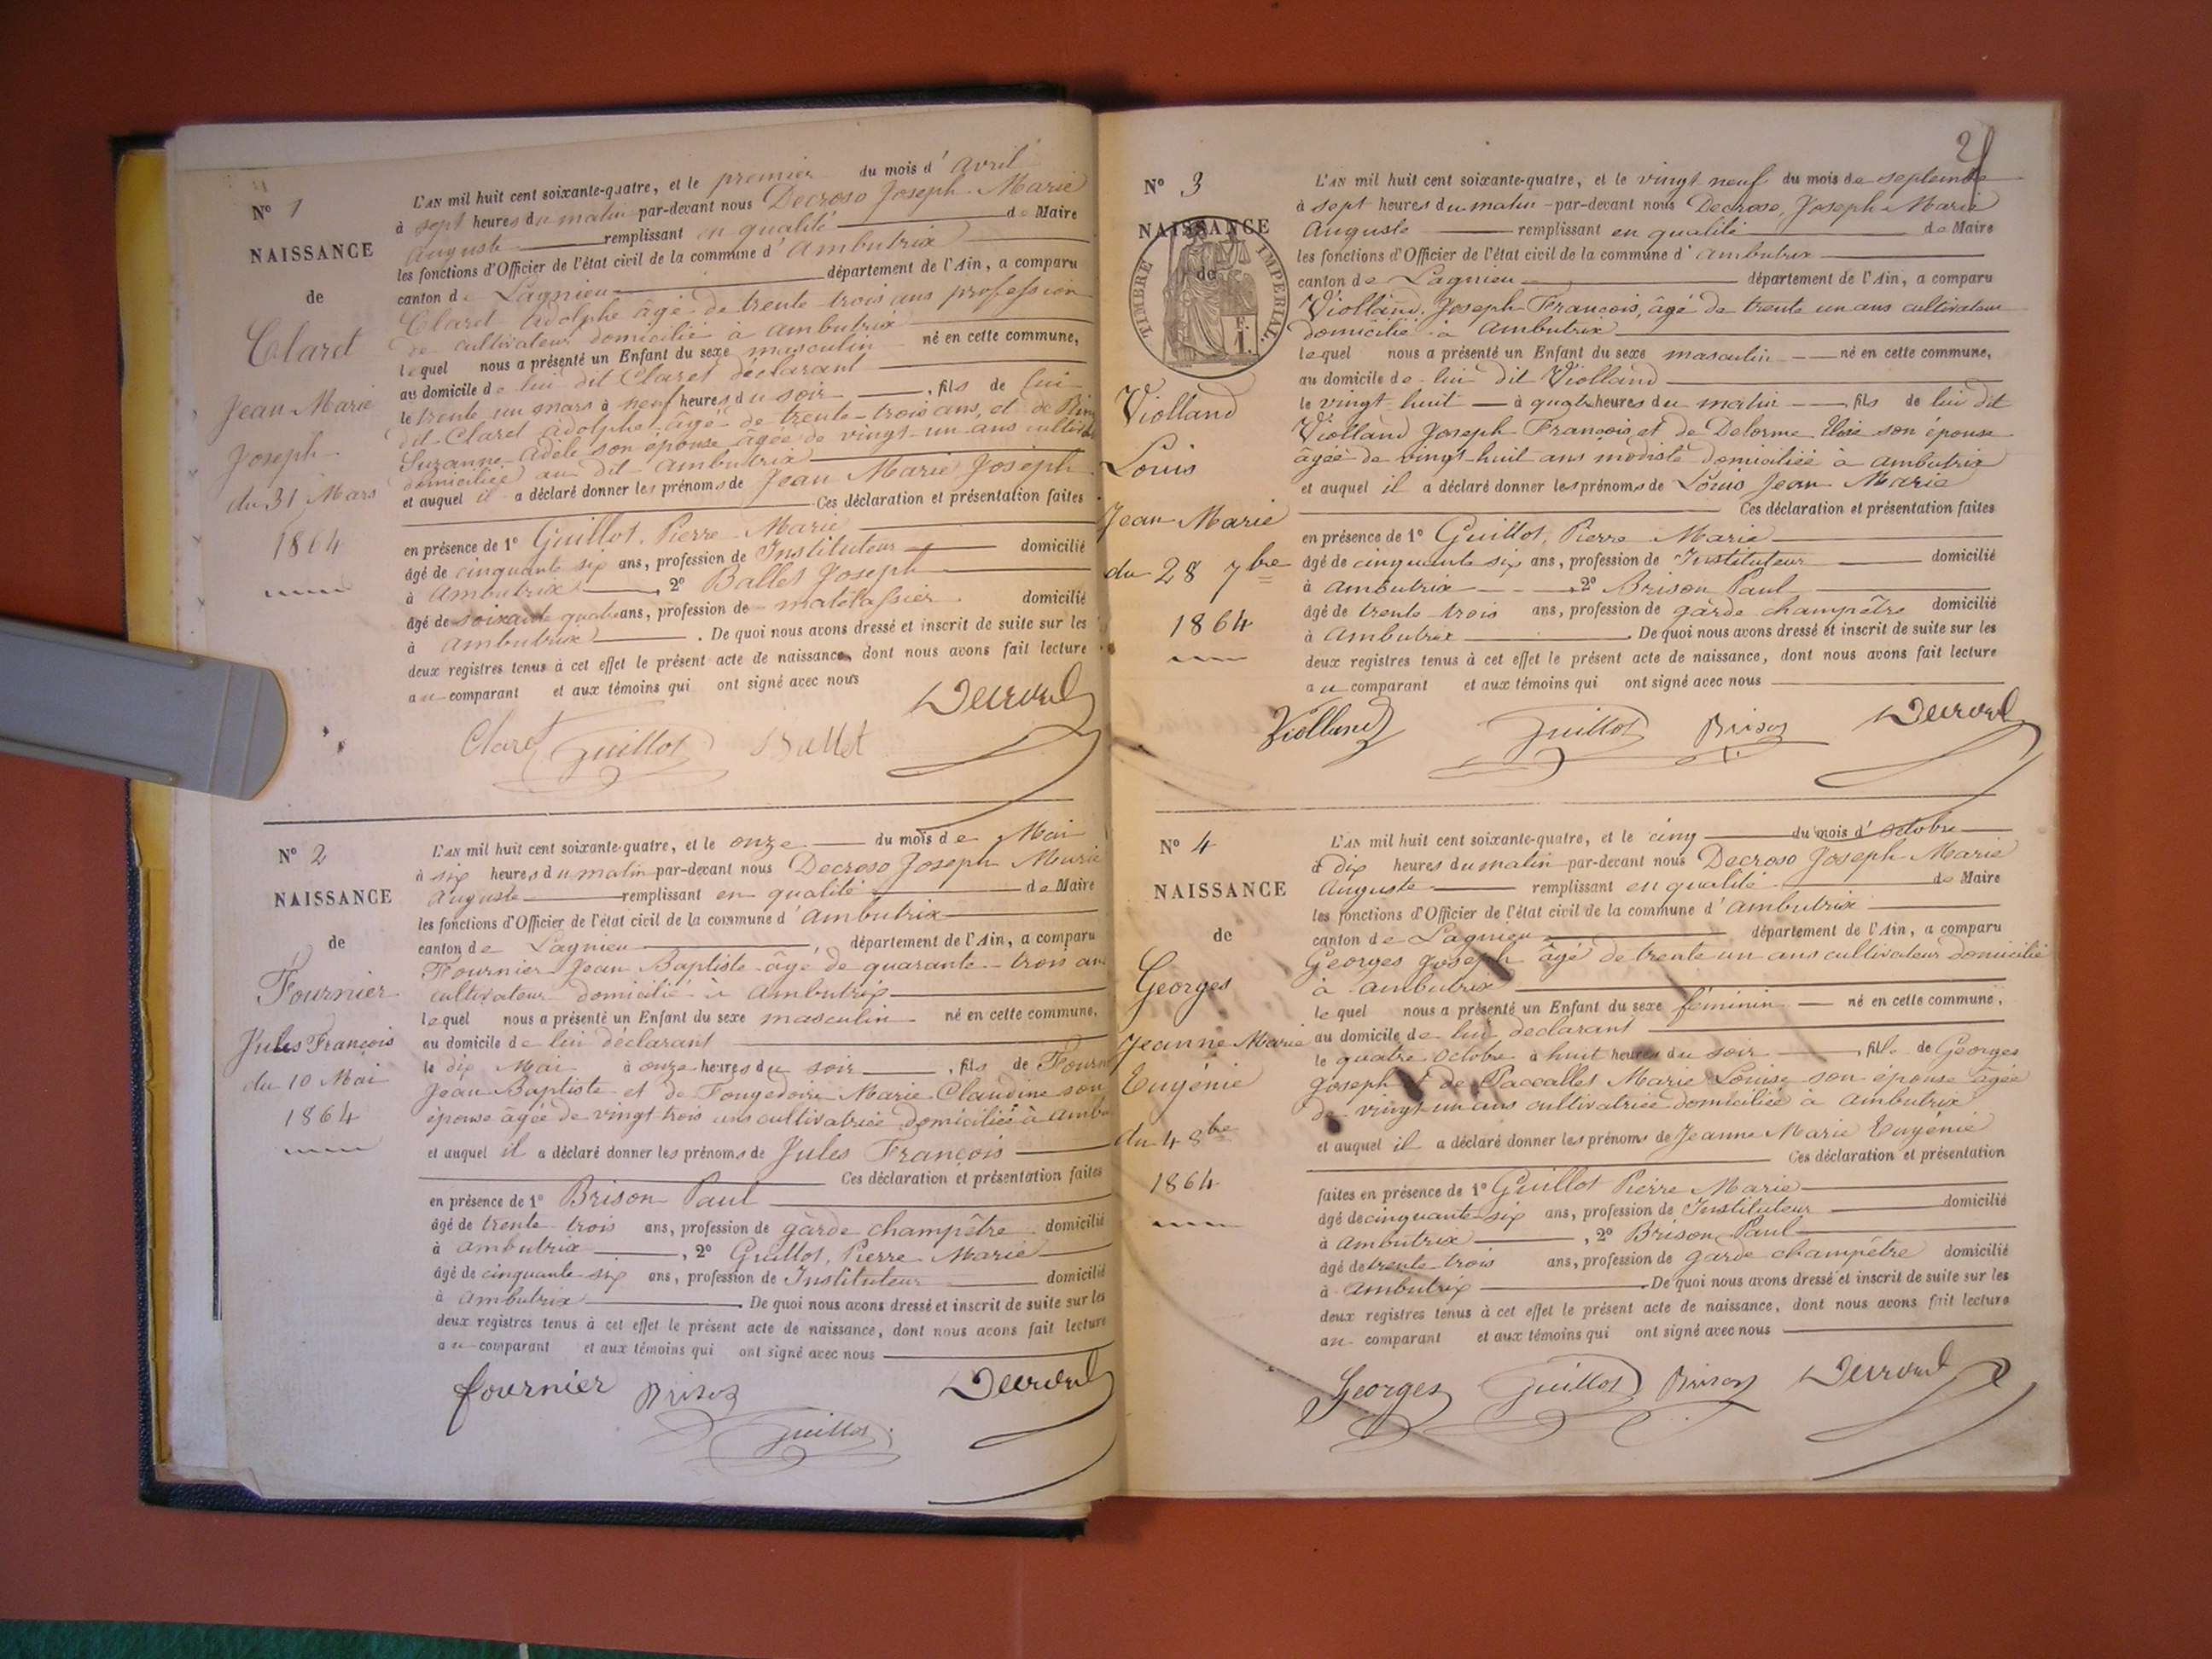 N° 1
NAISSANCE
de
Claret
Jean Marie
Joseph
du 31 Mars
1864
L'AN mil huit cent soixante-quatre, et le premier du mois d'avril
à sept heures du matin par-devant nous Decroso Joseph Marie
Auguste remplissant en qualité de Maire
les fonctions d'Officier de l'état civil de la commune d'Ambutrix
canton de Lagnieu département de l'Ain, a comparu
Claret Adolphe âgé de trente trois ans profession
de cultivateur domicilié à Ambutrix
lequel nous a présenté un Enfant du sexe masculin né en cette commune,
au domicile de lui dit Claret déclarant
le trente un mars à neuf heures du soir, fils de lui
dit Claret Adolphe âgé de trente-trois ans, et de
Suzanne Adèle son épouse âgée de vingt-un ans
domiciliée au dit Ambutrix
et auquel il a déclaré donner les prénoms de Jean Marie Joseph
Ces déclaration et présentation faites
en présence de 1° Guillot, Pierre Marie
âgé de cinquante six ans, profession de Instituteur domicilié
à Ambutrix, 2° Ballet Joseph
âgé de soixante quatre ans, profession de matelassier domicilié
à Ambutrix. De quoi nous avons dressé et inscrit de suite sur les
deux registres tenus à cet effet le présent acte de naissance, dont nous avons fait lecture
au comparant et aux témoins qui ont signé avec nous
Claret Guillot Ballet Decroso
N° 2
NAISSANCE
de
Fournier
Jules François
du 10 Mai
1864
L'AN mil huit cent soixante-quatre, et le onze du mois de Mai
à six heures du matin par-devant nous Decroso Joseph Marie
Auguste remplissant en qualité de Maire
les fonctions d'Officier de l'état civil de la commune d'Ambutrix
canton de Lagnieu, département de l'Ain, a comparu
Fournier Jean Baptiste âgé de quarante-trois ans
cultivateur domicilié à Ambutrix
lequel nous a présenté un Enfant du sexe masculin né en cette commune,
au domicile de lui déclarant
le dix Mai à onze heures du soir, fils de
Jean Baptiste et de Fougedoire Marie Claudine son
épouse âgée de vingt trois ans cultivatrice domiciliée à
et auquel il a déclaré donner les prénoms de Jules François
Ces déclaration et présentation faites
en présence de 1° Brison Paul
âgé de trente trois ans, profession de garde champêtre domicilié
à Ambutrix, 2° Guillot, Pierre Marie
âgé de cinquante six ans, profession de Instituteur domicilié
à Ambutrix. De quoi nous avons dressé et inscrit de suite sur les
deux registres tenus à cet effet le présent acte de naissance, dont nous avons fait lecture
au comparant et aux témoins qui ont signé avec nous
fournier Brison Decroso
Guillot
2
N° 3
NAISSANCE
de
TIMBRE IMPERIAL
1 F.
Violland
Louis
Jean Marie
du 28 7bre
1864
L'AN mil huit cent soixante-quatre, et le vingt neuf du mois de septembre
à sept heures du matin par-devant nous Decroso, Joseph Marie
Auguste remplissant en qualité de Maire
les fonctions d'Officier de l'état civil de la commune d'Ambutrix
canton de Lagnieu département de l'Ain, a comparu
Violland, Joseph François, âgé de trente un ans cultivateur
domicilié à Ambutrix
lequel nous a présenté un Enfant du sexe masculin né en cette commune,
au domicile de lui dit Violland
le vingt huit à quatre heures du matin, fils de lui dit
Violland Joseph François et de Delorme Elvie son épouse
âgée de vingt-huit ans modiste domiciliée à Ambutrix
et auquel il a déclaré donner les prénoms de Louis Jean Marie
Ces déclaration et présentation faites
en présence de 1° Guillot, Pierre Marie
âgé de cinquante six ans, profession de Instituteur domicilié
à Ambutrix, 2° Brison Paul
âgé de trente trois ans, profession de garde champêtre domicilié
à Ambutrix. De quoi nous avons dressé et inscrit de suite sur les
deux registres tenus à cet effet le présent acte de naissance, dont nous avons fait lecture
au comparant et aux témoins qui ont signé avec nous
Violland Guillot Brison Decroso
N° 4
NAISSANCE
de
Georges
Jeanne Marie
Eugénie
du 4 8bre
1864
L'AN mil huit cent soixante-quatre, et le cinq du mois d'octobre
à dix heures du matin par-devant nous Decroso Joseph Marie
Auguste remplissant en qualité de Maire
les fonctions d'Officier de l'état civil de la commune d'Ambutrix
canton de Lagnieu département de l'Ain, a comparu
Georges Joseph âgé de trente un ans cultivateur domicilié
à Ambutrix
lequel nous a présenté un Enfant du sexe féminin né en cette commune,
au domicile de lui déclarant
le quatre Octobre à huit heures du soir, fille de Georges
Joseph et de Paccallet Marie Louise son épouse âgée
de vingt-un ans cultivatrice domiciliée à Ambutrix
et auquel il a déclaré donner les prénoms de Jeanne Marie Eugénie
Ces déclaration et présentation
faites en présence de 1° Guillot Pierre Marie
âgé de cinquante-six ans, profession de Instituteur domicilié
à Ambutrix, 2° Brison Paul
âgé de trente trois ans, profession de garde champêtre domicilié
à Ambutrix. De quoi nous avons dressé et inscrit de suite sur les
deux registres tenus à cet effet le présent acte de naissance, dont nous avons fait lecture
au comparant et aux témoins qui ont signé avec nous
Georges Guillot Brison Decroso